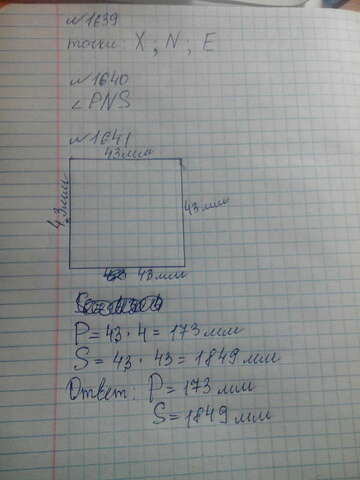 №1639
точки: X ; N ; E
№1640
∠PNS
№1641
43мм
43мм
43мм
43мм
P = 43 · 4 = 173мм
S = 43 · 43 = 1849мм
Ответ: P = 173мм
S = 1849мм